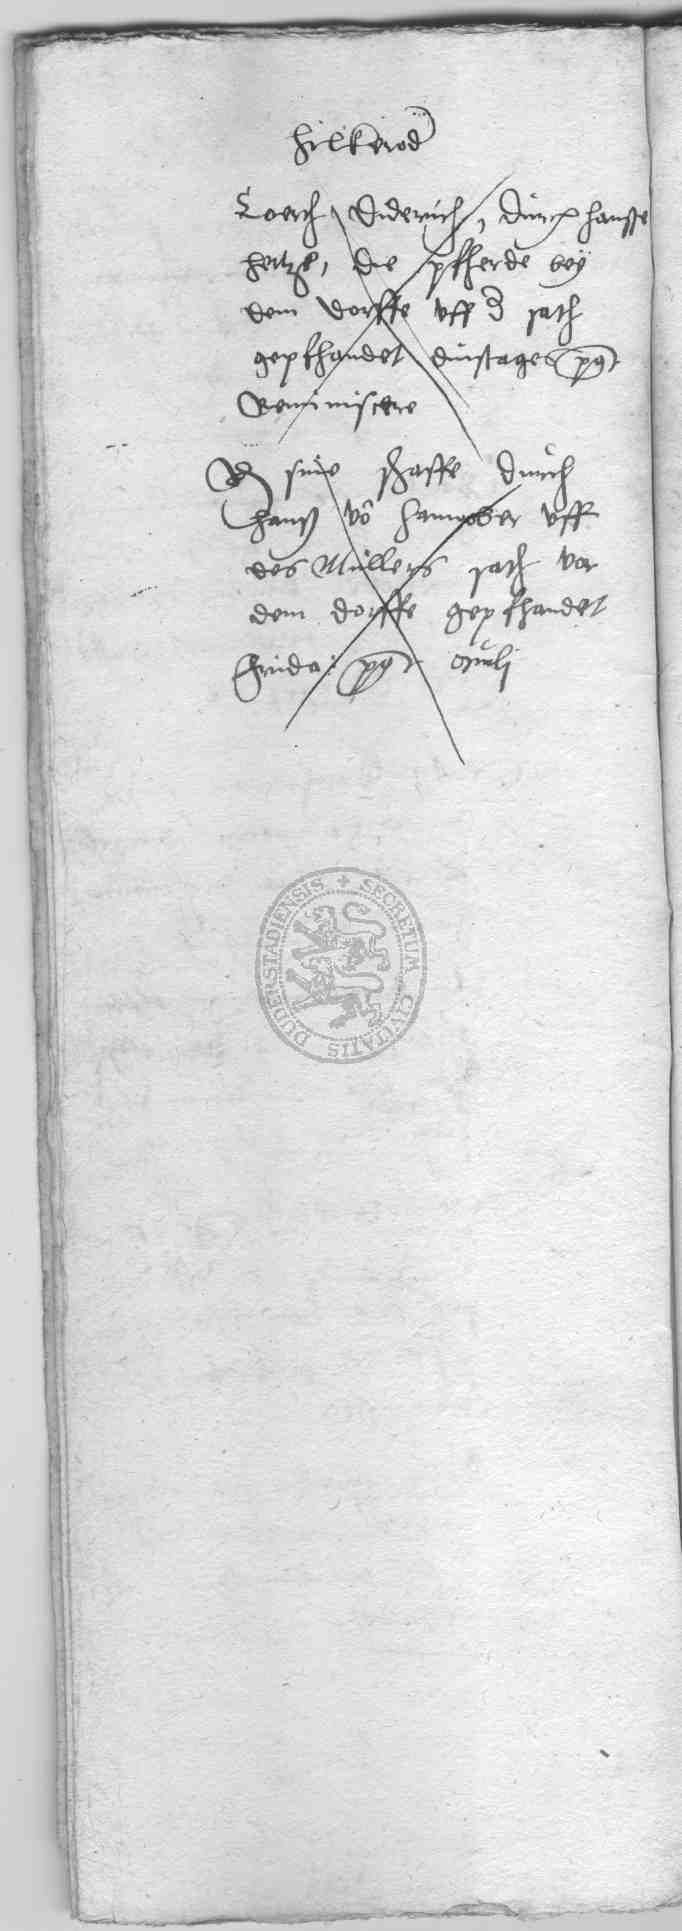 Hilkerod
Loerch Diderich, durch hansse
hertze, die pfherde bey
dem dorffe vff d sath
gepfhandet dinstages pq
Reminiscere
sine schaffe durch
hanß vo hannober vff
des Müllers sath vor
dem dorffe gepfhandet
Frida pq oculj
SECRETUM CIVITATIS DUDERSTADIENSIS